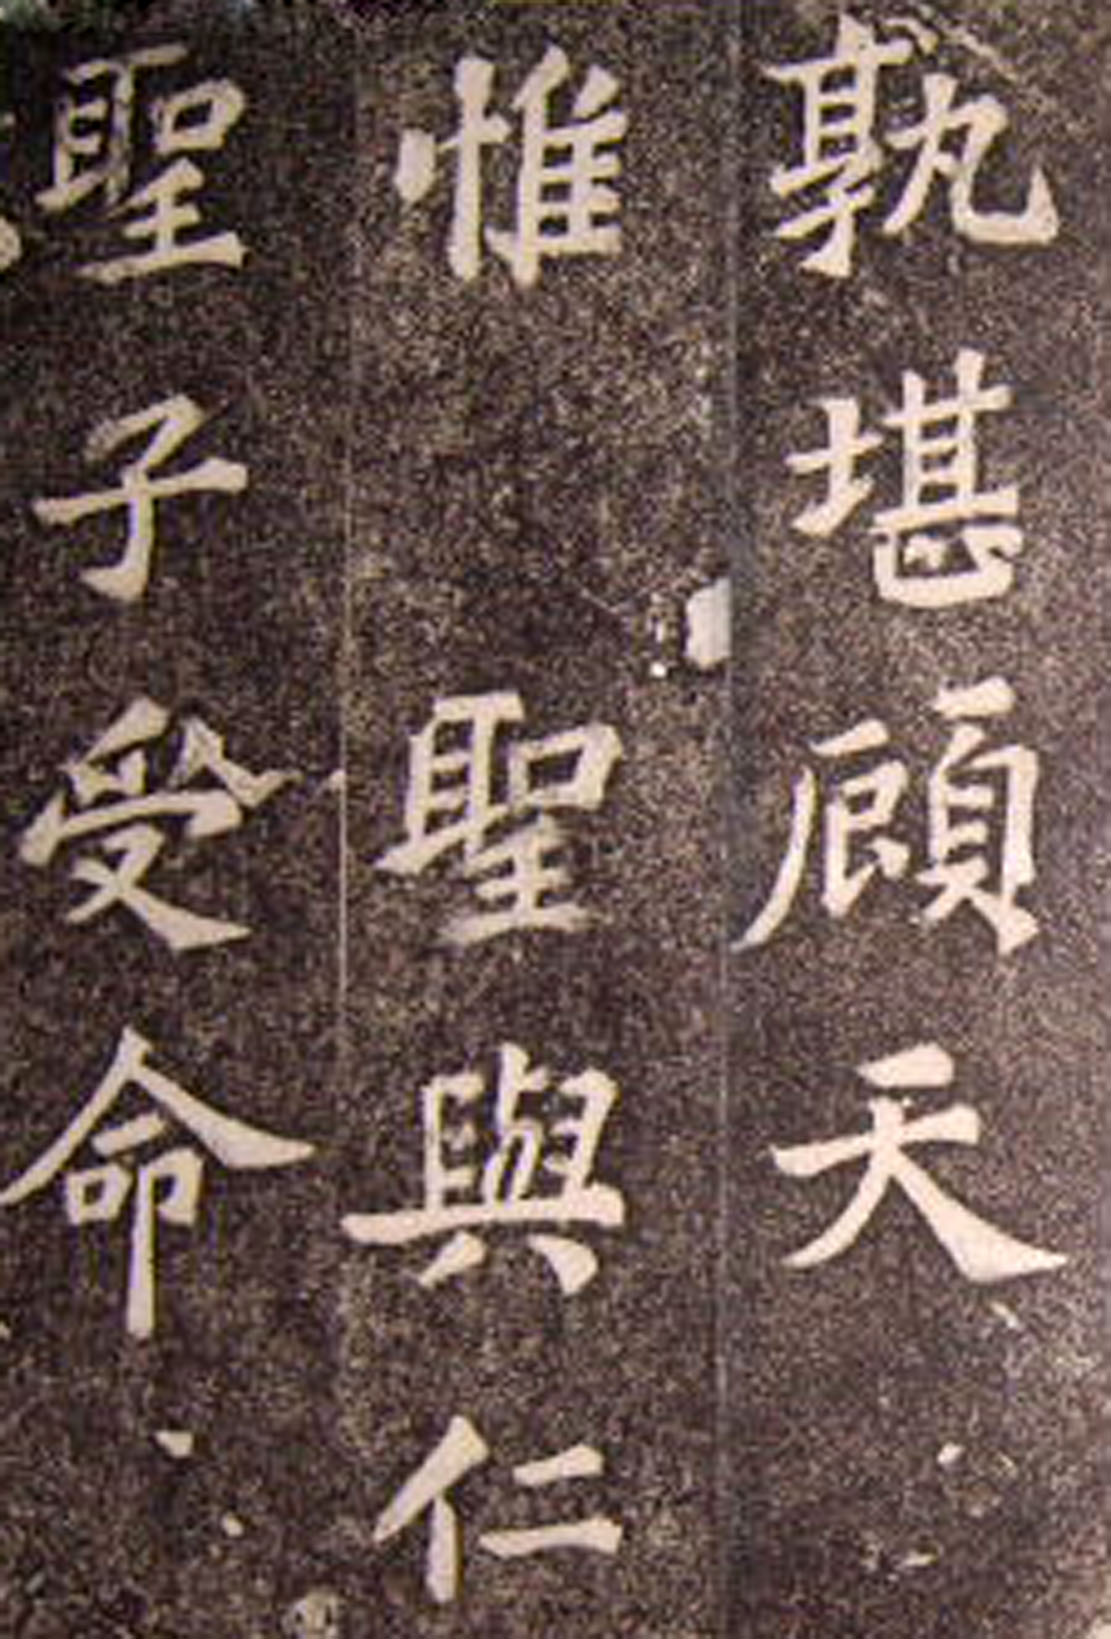 孰堪顧天
惟聖與仁
聖子受命